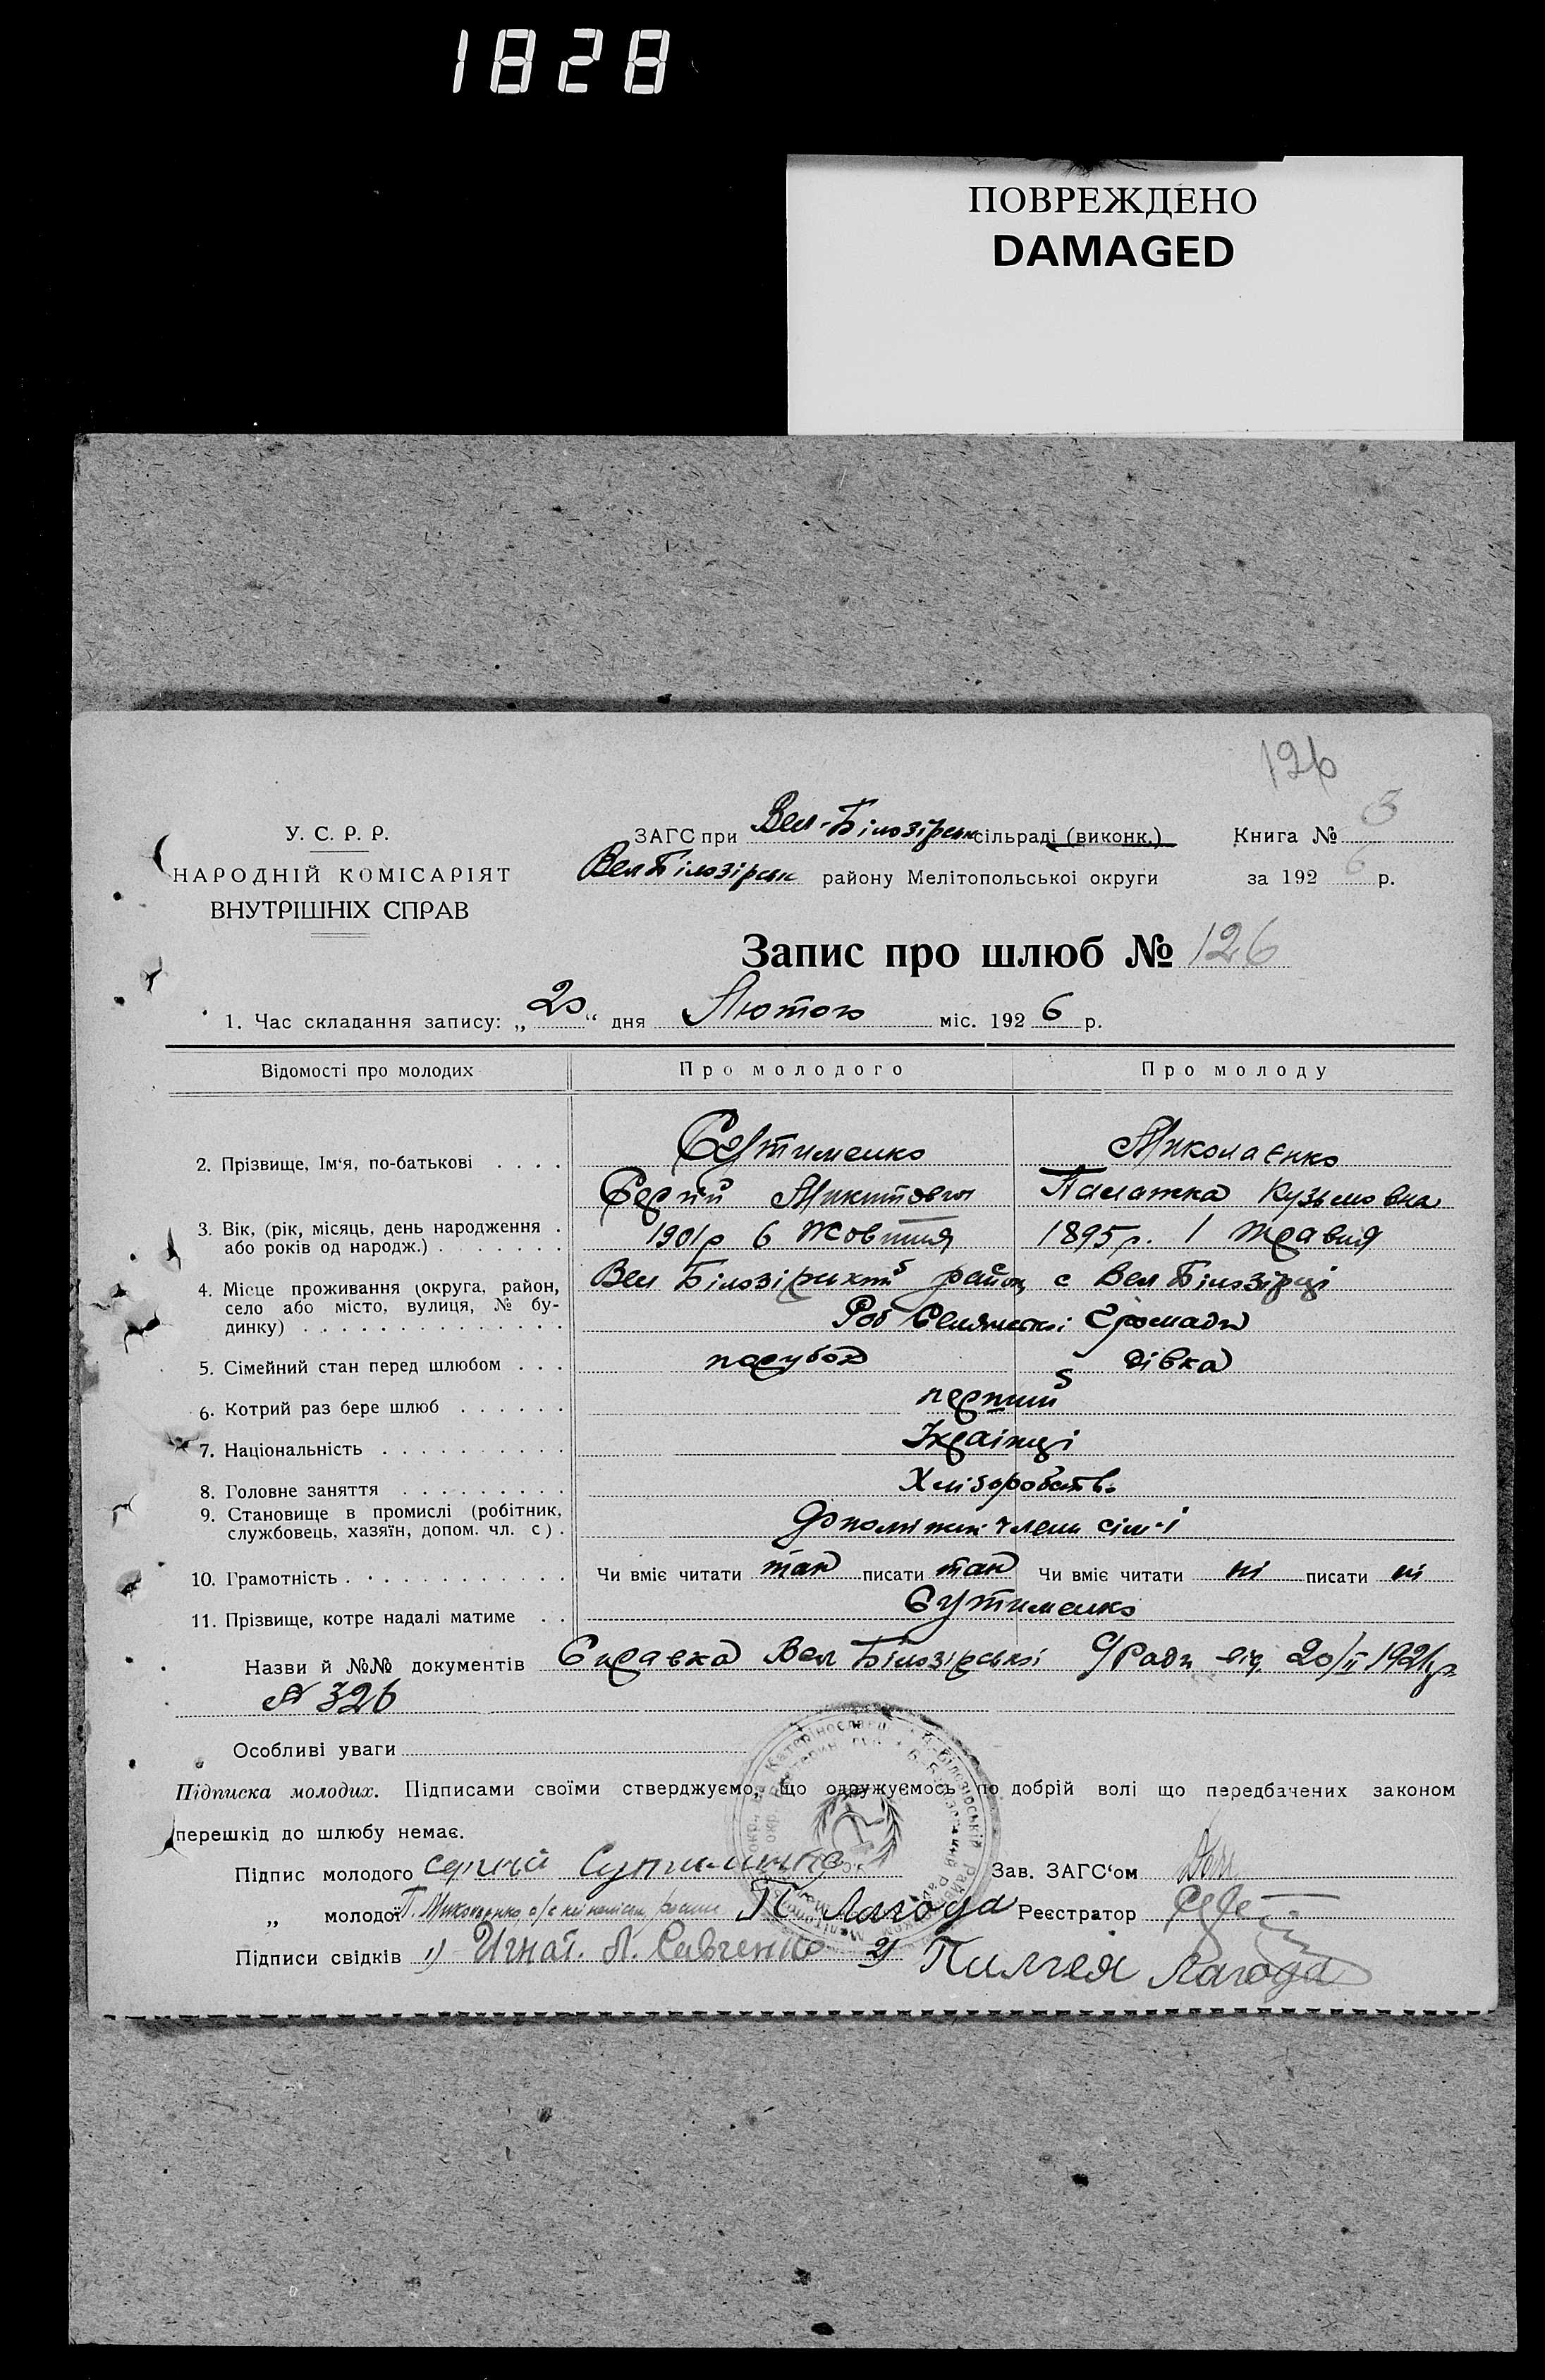 1828
ПОВРЕЖДЕНО
DAMAGED
126
У. С. Р. Р.
НАРОДНІЙ КОМІСАРІЯТ
ВНУТРІШНІХ СПРАВ
ЗАГС при Вел-Білозірськ сільраді (виконк.)
Книга № 3
Вел Білозірськ району Мелітопольської округи
за 1926 р.
Запис про шлюб № 126
1. Час складання запису: „20“ дня Лютого міс. 1926 р.
Відомості про молодих Про молодого Про молоду
2. Прізвище, Ім‘я, по-батькові . . . . Сутименко Миколаєнко
Сергій Микитович Палажка Кузьмовна
3. Вік, (рік, місяць, день народження .
або років од народж.) . . . . . . . 1901 р 6 Жовтня 1895 р. 1 Травня
4. Місце проживання (округа, район,
село або місто, вулиця, № бу-
динку) . . . . . . . . . . . . . . .
Вел Білозірський район, с Вел Білозірці
Громади
5. Сімейний стан перед шлюбом . . . парубок дівка
6. Котрий раз бере шлюб . . . . . . перший
7. Національність . . . . . . . . . . Українці
8. Головне заняття . . . . . . . . . Хліборобств.
9. Становище в промислі (робітник,
службовець, хазяїн, допом. чл. с) . члени сім-і
10. Грамотність . . . . . . . . . . . . Чи вміє читати так писати так Чи вміє читати ні писати ні
11. Прізвище, котре надалі матиме . . Сутименко
Назви й №№ документів Справка Вел Білозірської С/Ради від 20/II 1926 р
№ 326
Особливі уваги
Підписка молодих. Підписами своїми стверджуємо, що одружуємось по добрій волі що передбачених законом
перешкід до шлюбу немає.
Підпис молодого Сергій Сутименко Зав. ЗАГС‘ом
„ молодої П. Миколаєнко, П Лагода Реєстратор
Підписи свідків 1) Игнат. Л. Савченко 2) Пилмея Лагода